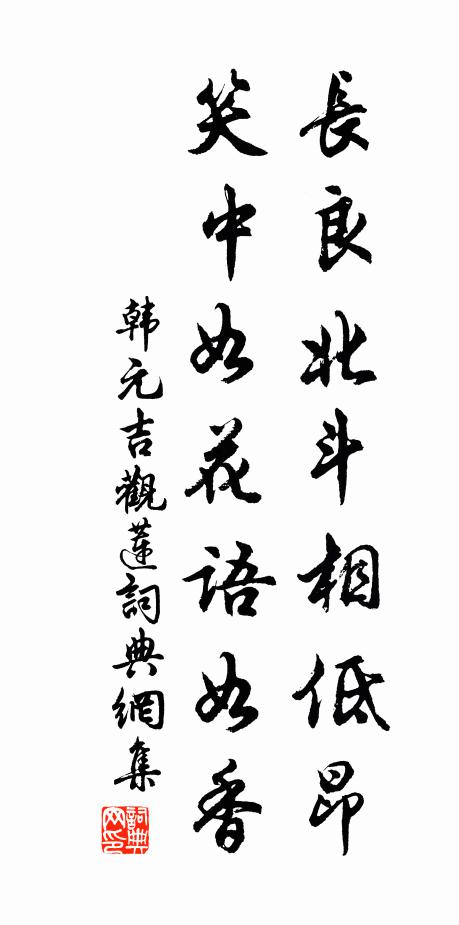 長良北斗相低昂
笑中如花語如香
韩元吉觀蓮詞典網集
詞典网印